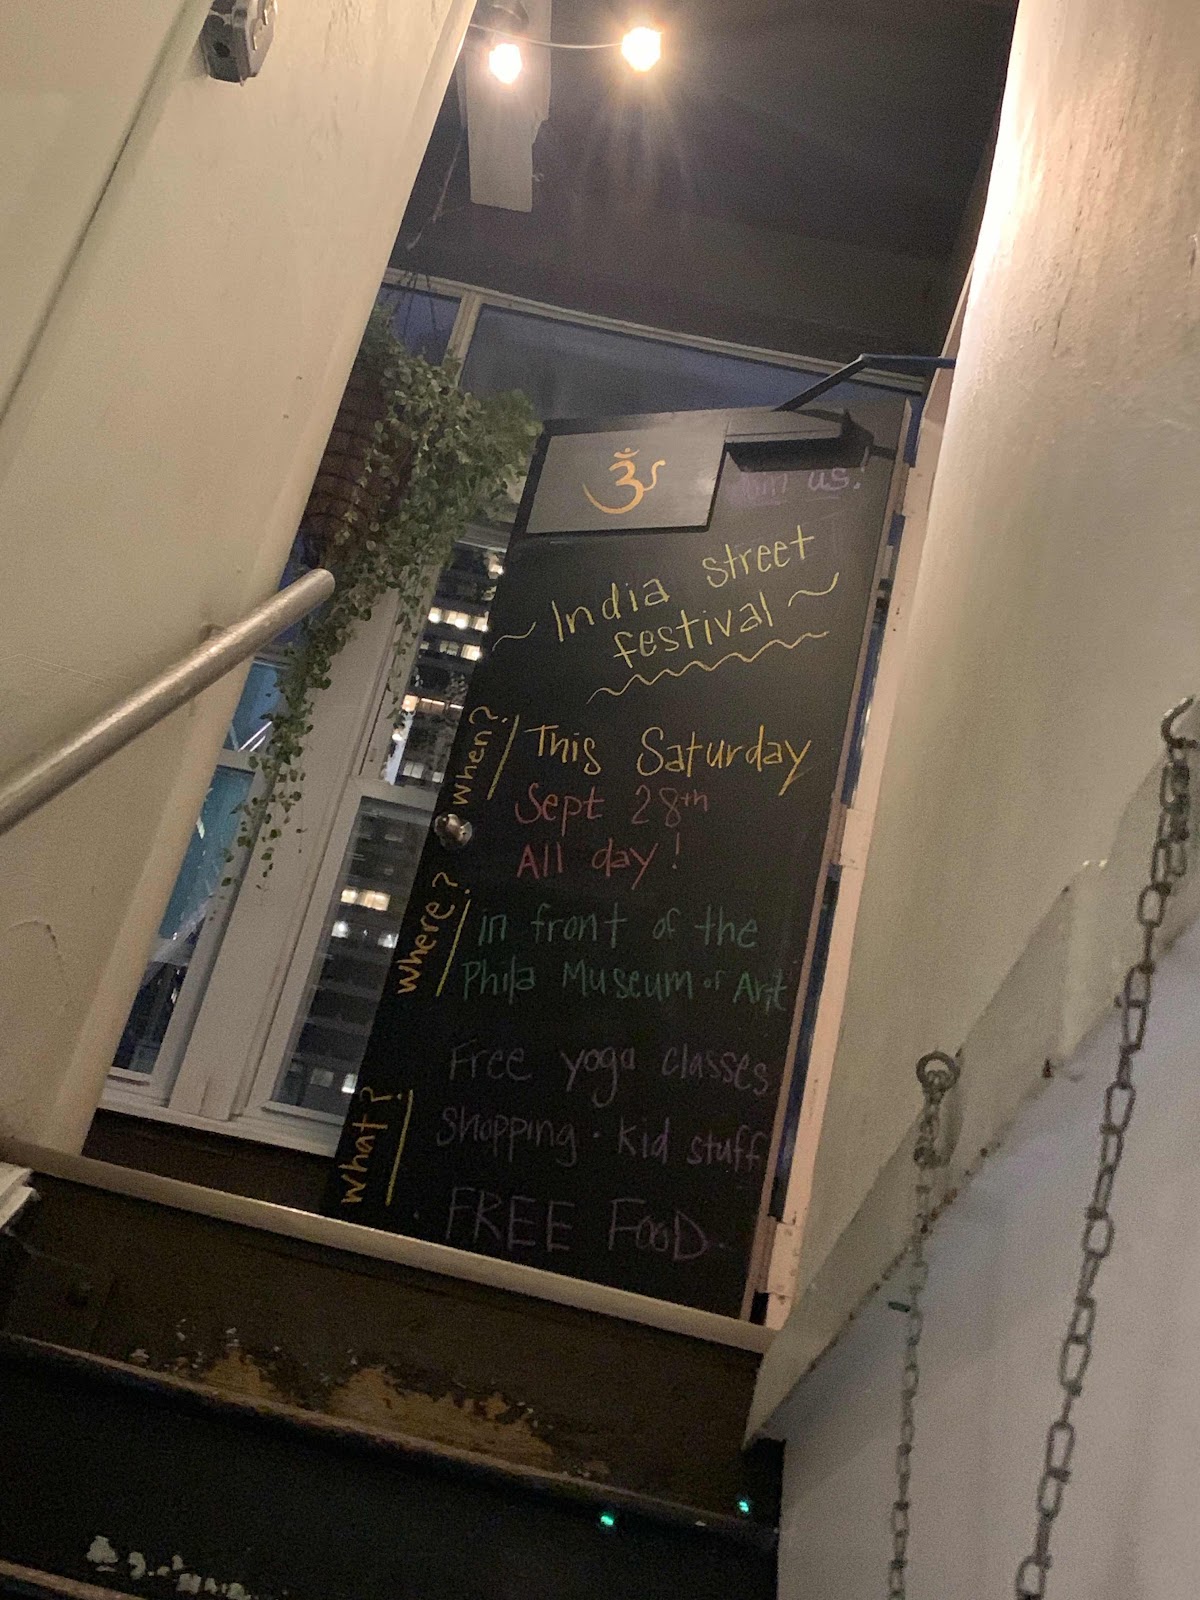 ॐ
us!
~ India street
festival ~
when?
This Saturday
Sept 28th
All day!
where?
in front of the
Phila Museum of Art
what?
Free yoga classes
shopping · kid stuff
· FREE FOOD ·